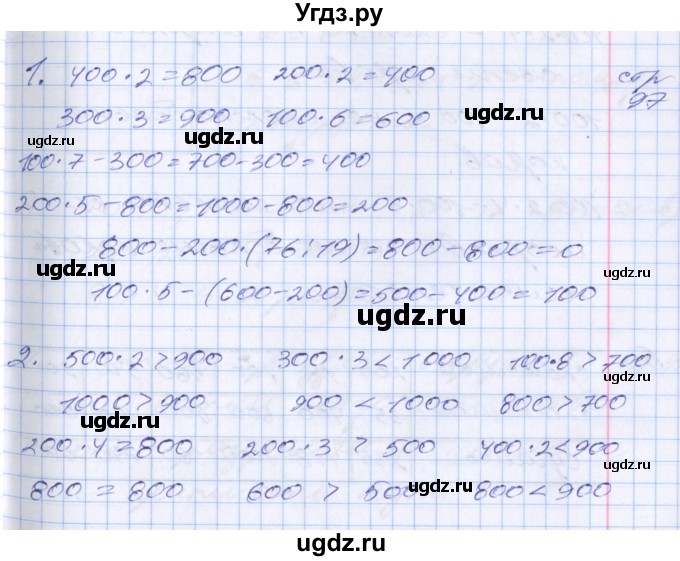 Угдз.ру
1. 400·2=800 200·2=400 стр 97
300·3=900 100·6=600
100·7-300=700-300=400
200·5-800=1000-800=200
800-200·(76:19)=800-800=0
100·5-(600-200)=500-400=100
2. 500·2>900 300·3<1000 100·8>700
1000>900 900<1000 800>700
200·4=800 200·3>500 400·2<900
800=800 600>500 800<900
ugdz.ru
ugdz.ru
ugdz.ru
ugdz.ru
ugdz.ru
ugdz.ru
ugdz.ru
ugdz.ru
ugdz.ru